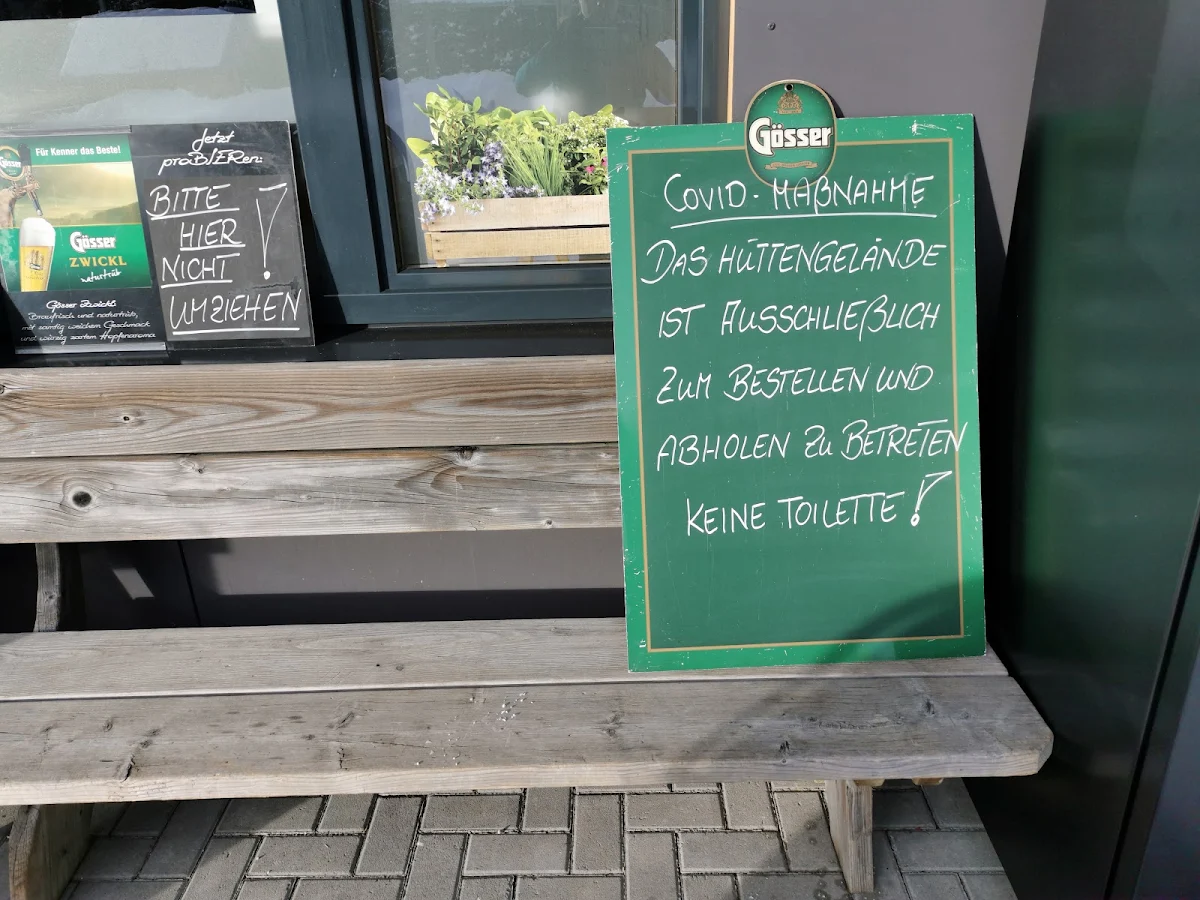 Für Kenner das Beste!
Gösser
Gösser
ZWICKL
naturtrüb
Gösser Zwickl:
Braufrisch und naturtrüb,
mit samtig weichem Geschmack
und würzig zartem Hopfenaroma
Jetzt
proBIERen:
BITTE
HIER
NICHT
UMZIEHEN!
Gösser
COVID-MAßNAHME
DAS HÜTTENGELÄNDE
IST AUSSCHLIEßLICH
ZUM BESTELLEN UND
ABHOLEN ZU BETRETEN
KEINE TOILETTE!